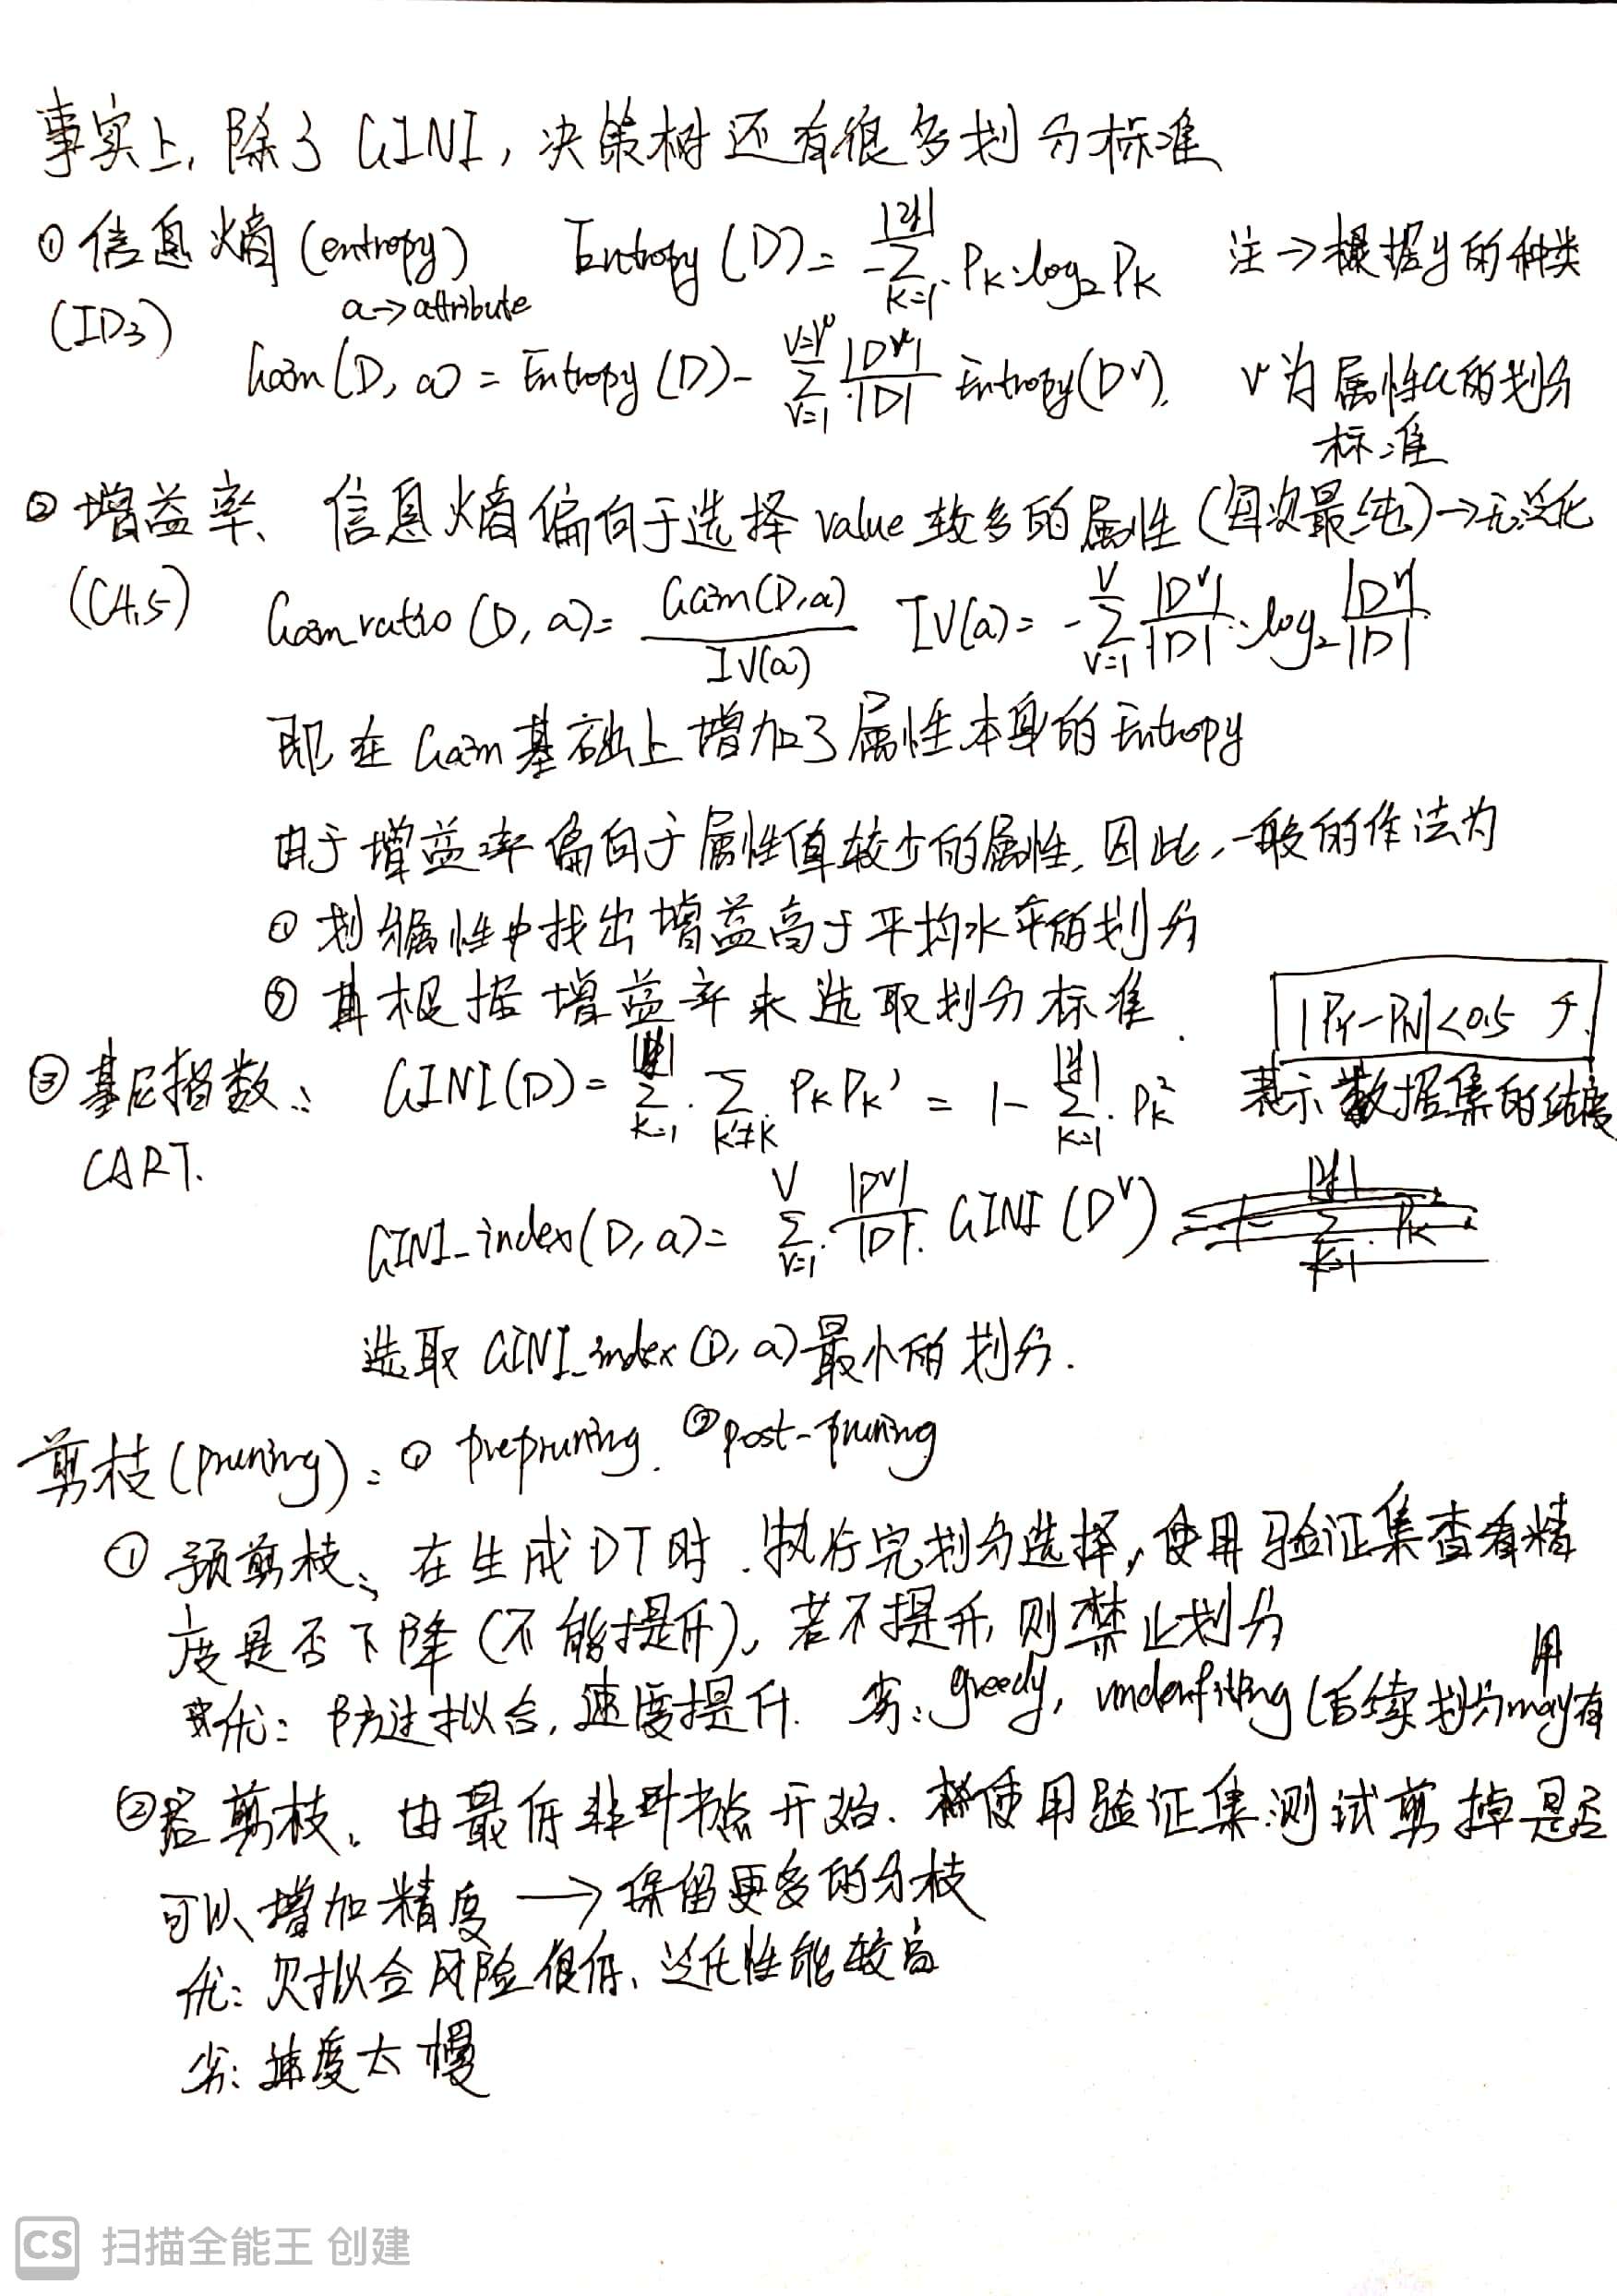 事实上, 除了 GINI, 决策树还有很多划分标准
① 信息熵 (entropy) Entropy (D) = -∑_{k=1}^{|y|} P_k·log_2 P_k 注→根据y的种类
(ID3) a→attribute
Gain(D, a) = Entropy (D) - ∑_{v=1}^{v=V} |D^v|/|D| Entropy(D^v). v为属性a的划分
标准
② 增益率、信息熵偏向于选择 value 较多的属性 (每次最纯)→无泛化
(C4.5) Gain_ratio (D, a) = Gain(D,a) / IV(a) IV(a) = -∑_{v=1}^{V} |D^v|/|D|·log_2 |D^v|/|D|
即在 Gain 基础上增加了属性本身的 Entropy
由于增益率偏向于属性值较少的属性, 因此, 一般的作法为
① 划分属性中找出增益高于平均水平的划分
② 再根据增益率来选取划分标准.
|P_Y-P_N|<0.5
③ 基尼指数: GINI(D) = ∑_{k=1}^{|y|}·∑_{k'≠k} P_k P_k' = 1 - ∑_{k=1}^{|y|}·P_k^2 表示数据集的纯度
CART.
GINI_index(D, a) = ∑_{v=1}^{V} |D^v|/|D|·GINI (D^v)
选取 GINI_index (D, a) 最小的划分.
剪枝 (pruning): ① prepruning. ② post-pruning
① 预剪枝、在生成DT时. 执行完划分选择, 使用验证集查看精
度是否下降 (不能提升), 若不提升, 则禁止划分
优: 防过拟合, 速度提升. 劣: greedy, underfitting (后续划分may有
用
② 后剪枝. 由最低非叶节点开始. 使用验证集测试剪掉是否
可以增加精度 → 保留更多的分枝
优: 欠拟合风险很低、泛化性能较高
劣: 速度太慢
CS 扫描全能王 创建